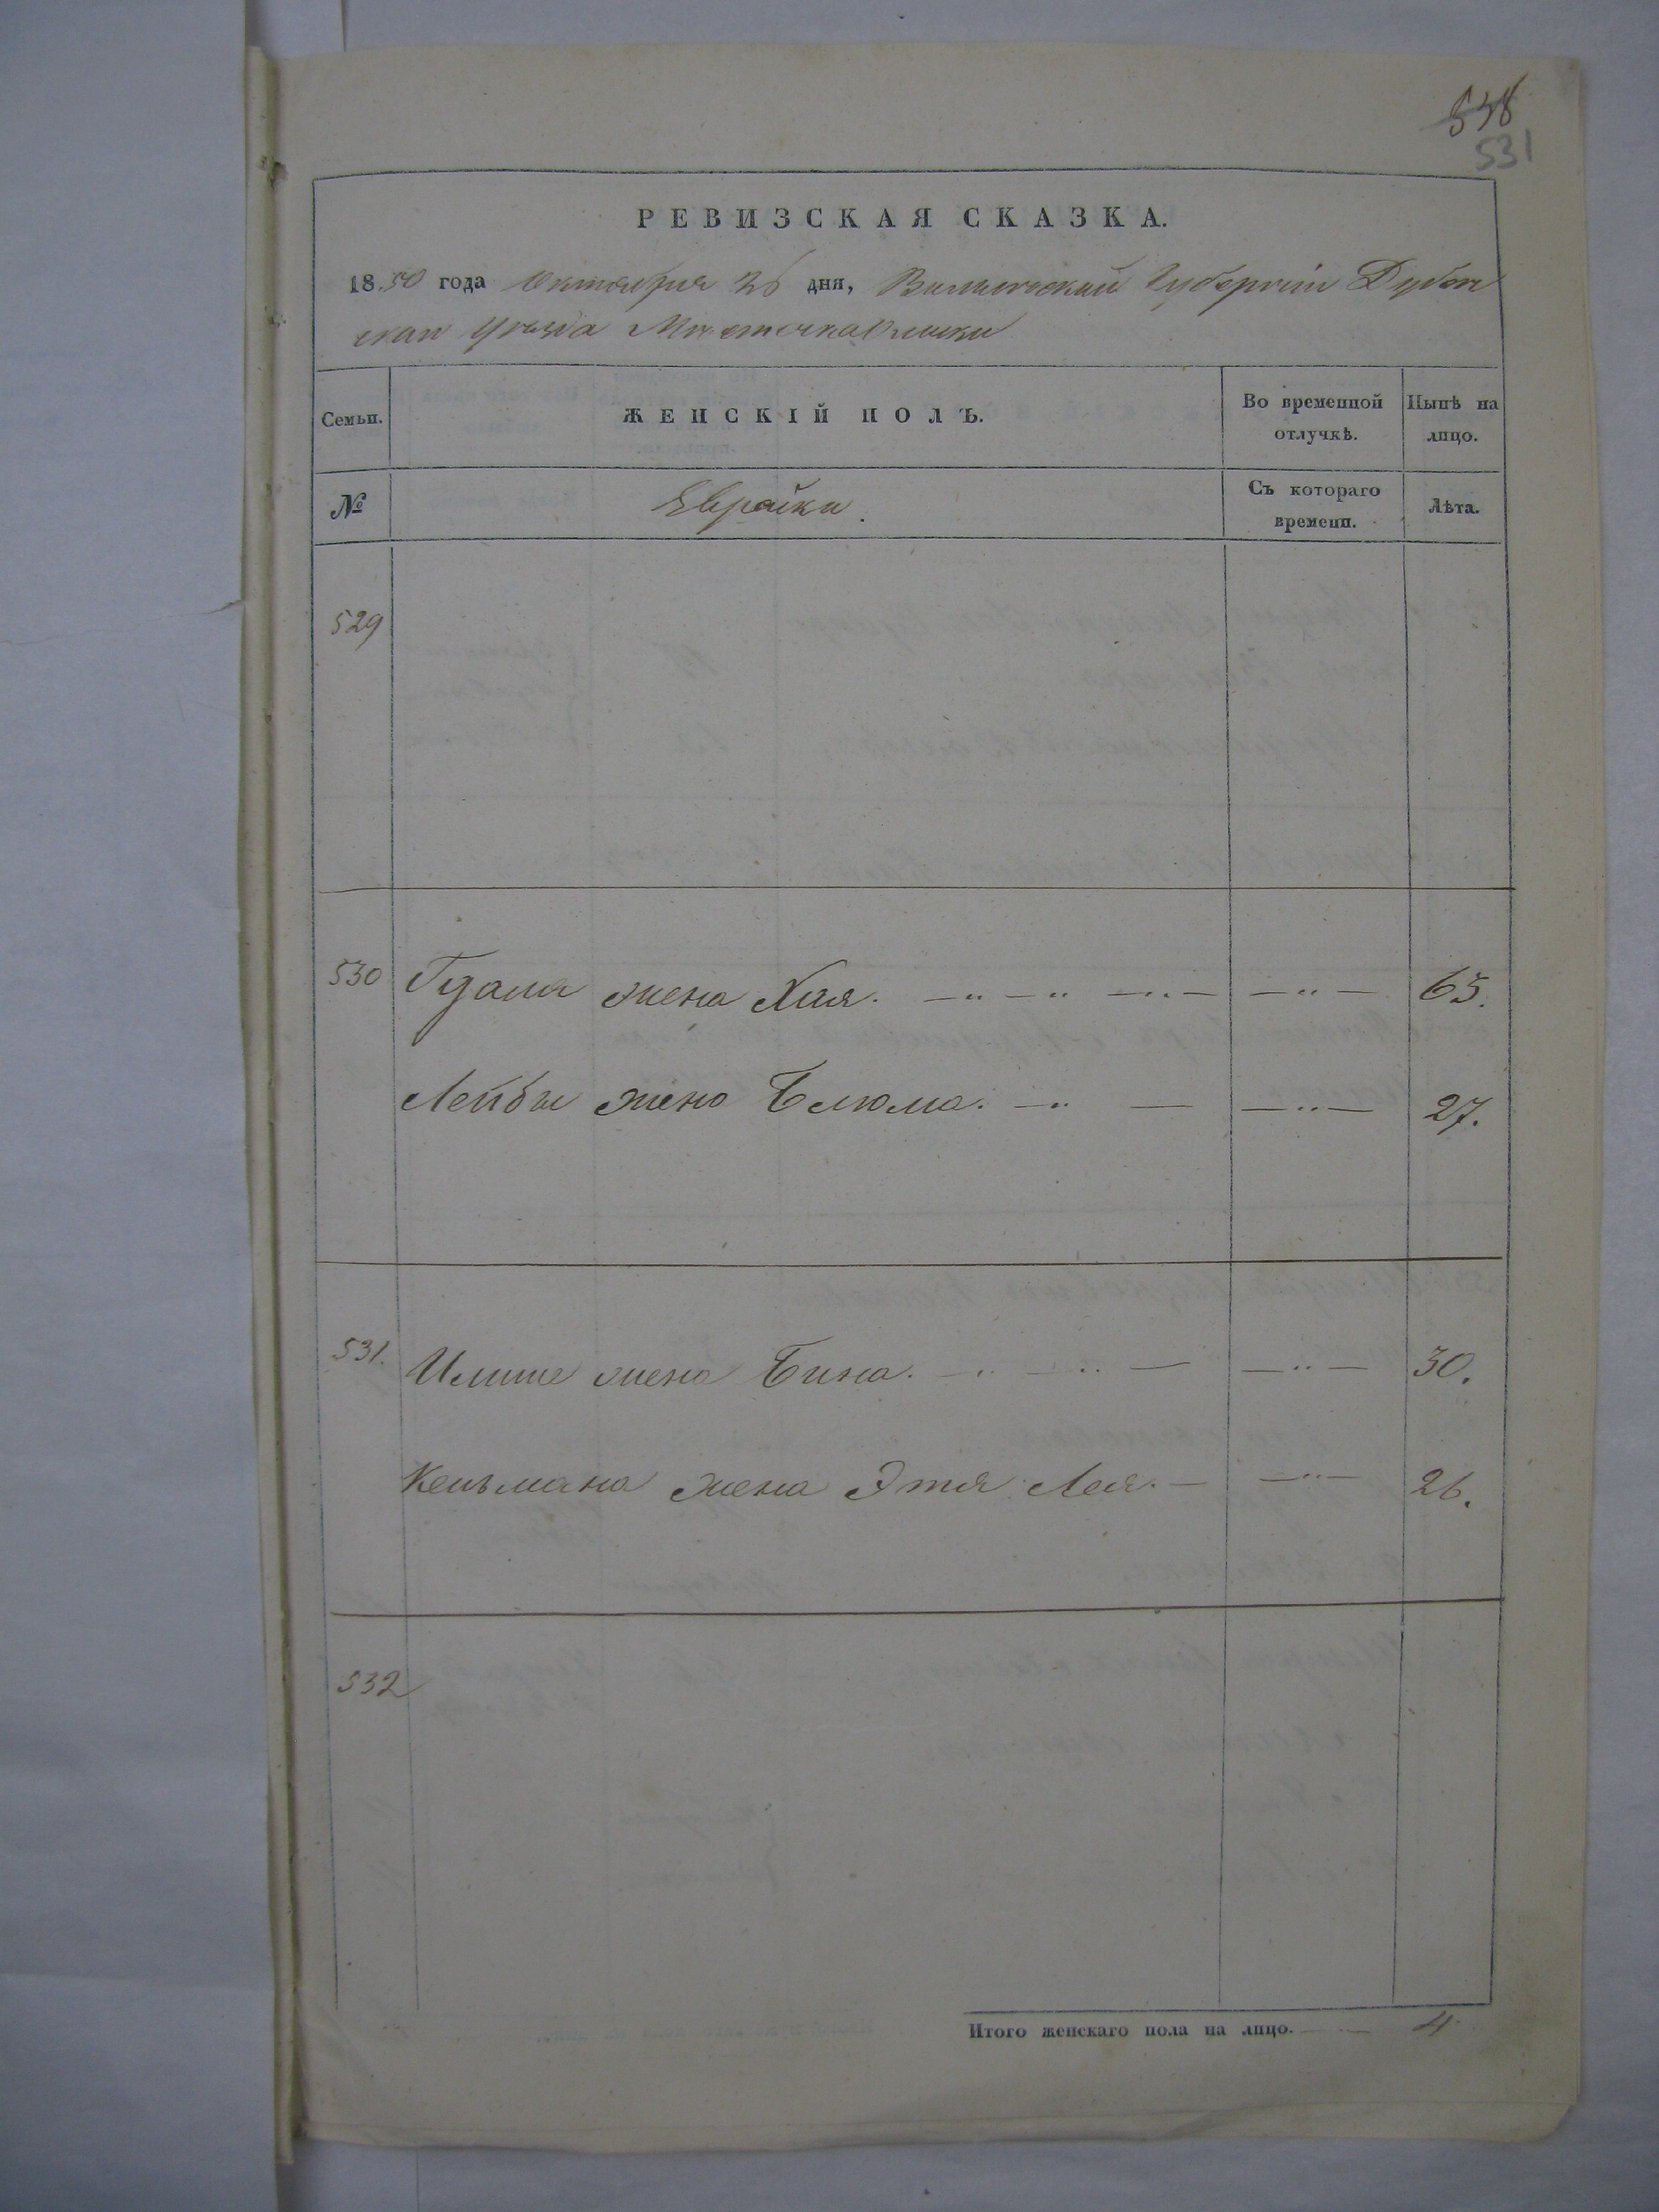 538
531
РЕВИЗСКАЯ СКАЗКА.
1850 года Октября 26 дня, Волынской Губерніи Дубен
скаго уѣзда Мѣстечка
Семьи. ЖЕНСКІЙ ПОЛЪ. Во временной отлучкѣ. Нынѣ на лицо.
№ Еврейки. Съ котораго времени. Лѣта.
529
530 жена Хая. 65.
Лейбы жена Блюма. 27.
531. жена Бина. 30.
Кельмана жена Этя Лея. 26.
532
Итого женскаго пола на лицо. 4